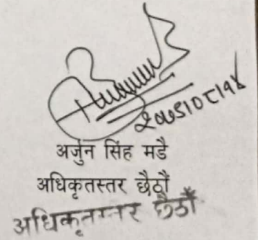 २०७५।०८।१४
अर्जुन सिंह मडै
अधिकृतस्तर छैठौं
अधिकृतस्तर छैठौं